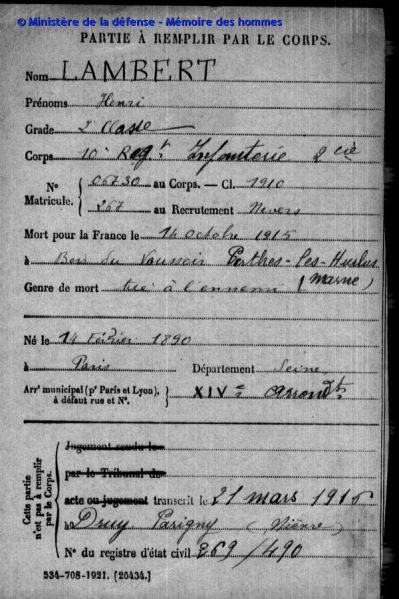 © Ministère de la défense - Mémoire des hommes
PARTIE À REMPLIR PAR LE CORPS.
Nom LAMBERT
Prénoms Henri
Grade 2e Classe
Corps 10e Régt Infanterie 2 cie
Nos Matricule. { 05730 au Corps. — Cl. 1910
267 au Recrutement Nevers
Mort pour la France le 14 Octobre 1915
à Bois du Perthes-les-Hurlus
(Marne)
Genre de mort tué à l'ennemi
Né le 14 Février 1890
à Paris Département Seine
Arrt municipal (pr Paris et Lyon), à défaut rue et No. } XIVe Arrondt
Cette partie n'est pas à remplir par le Corps.
Jugement rendu le
par le Tribunal de
acte ou jugement transcrit le 21 mars 1916
à Druy Parigny (Nièvre)
No du registre d'état civil 269/490
534-708-1921. [26434.]